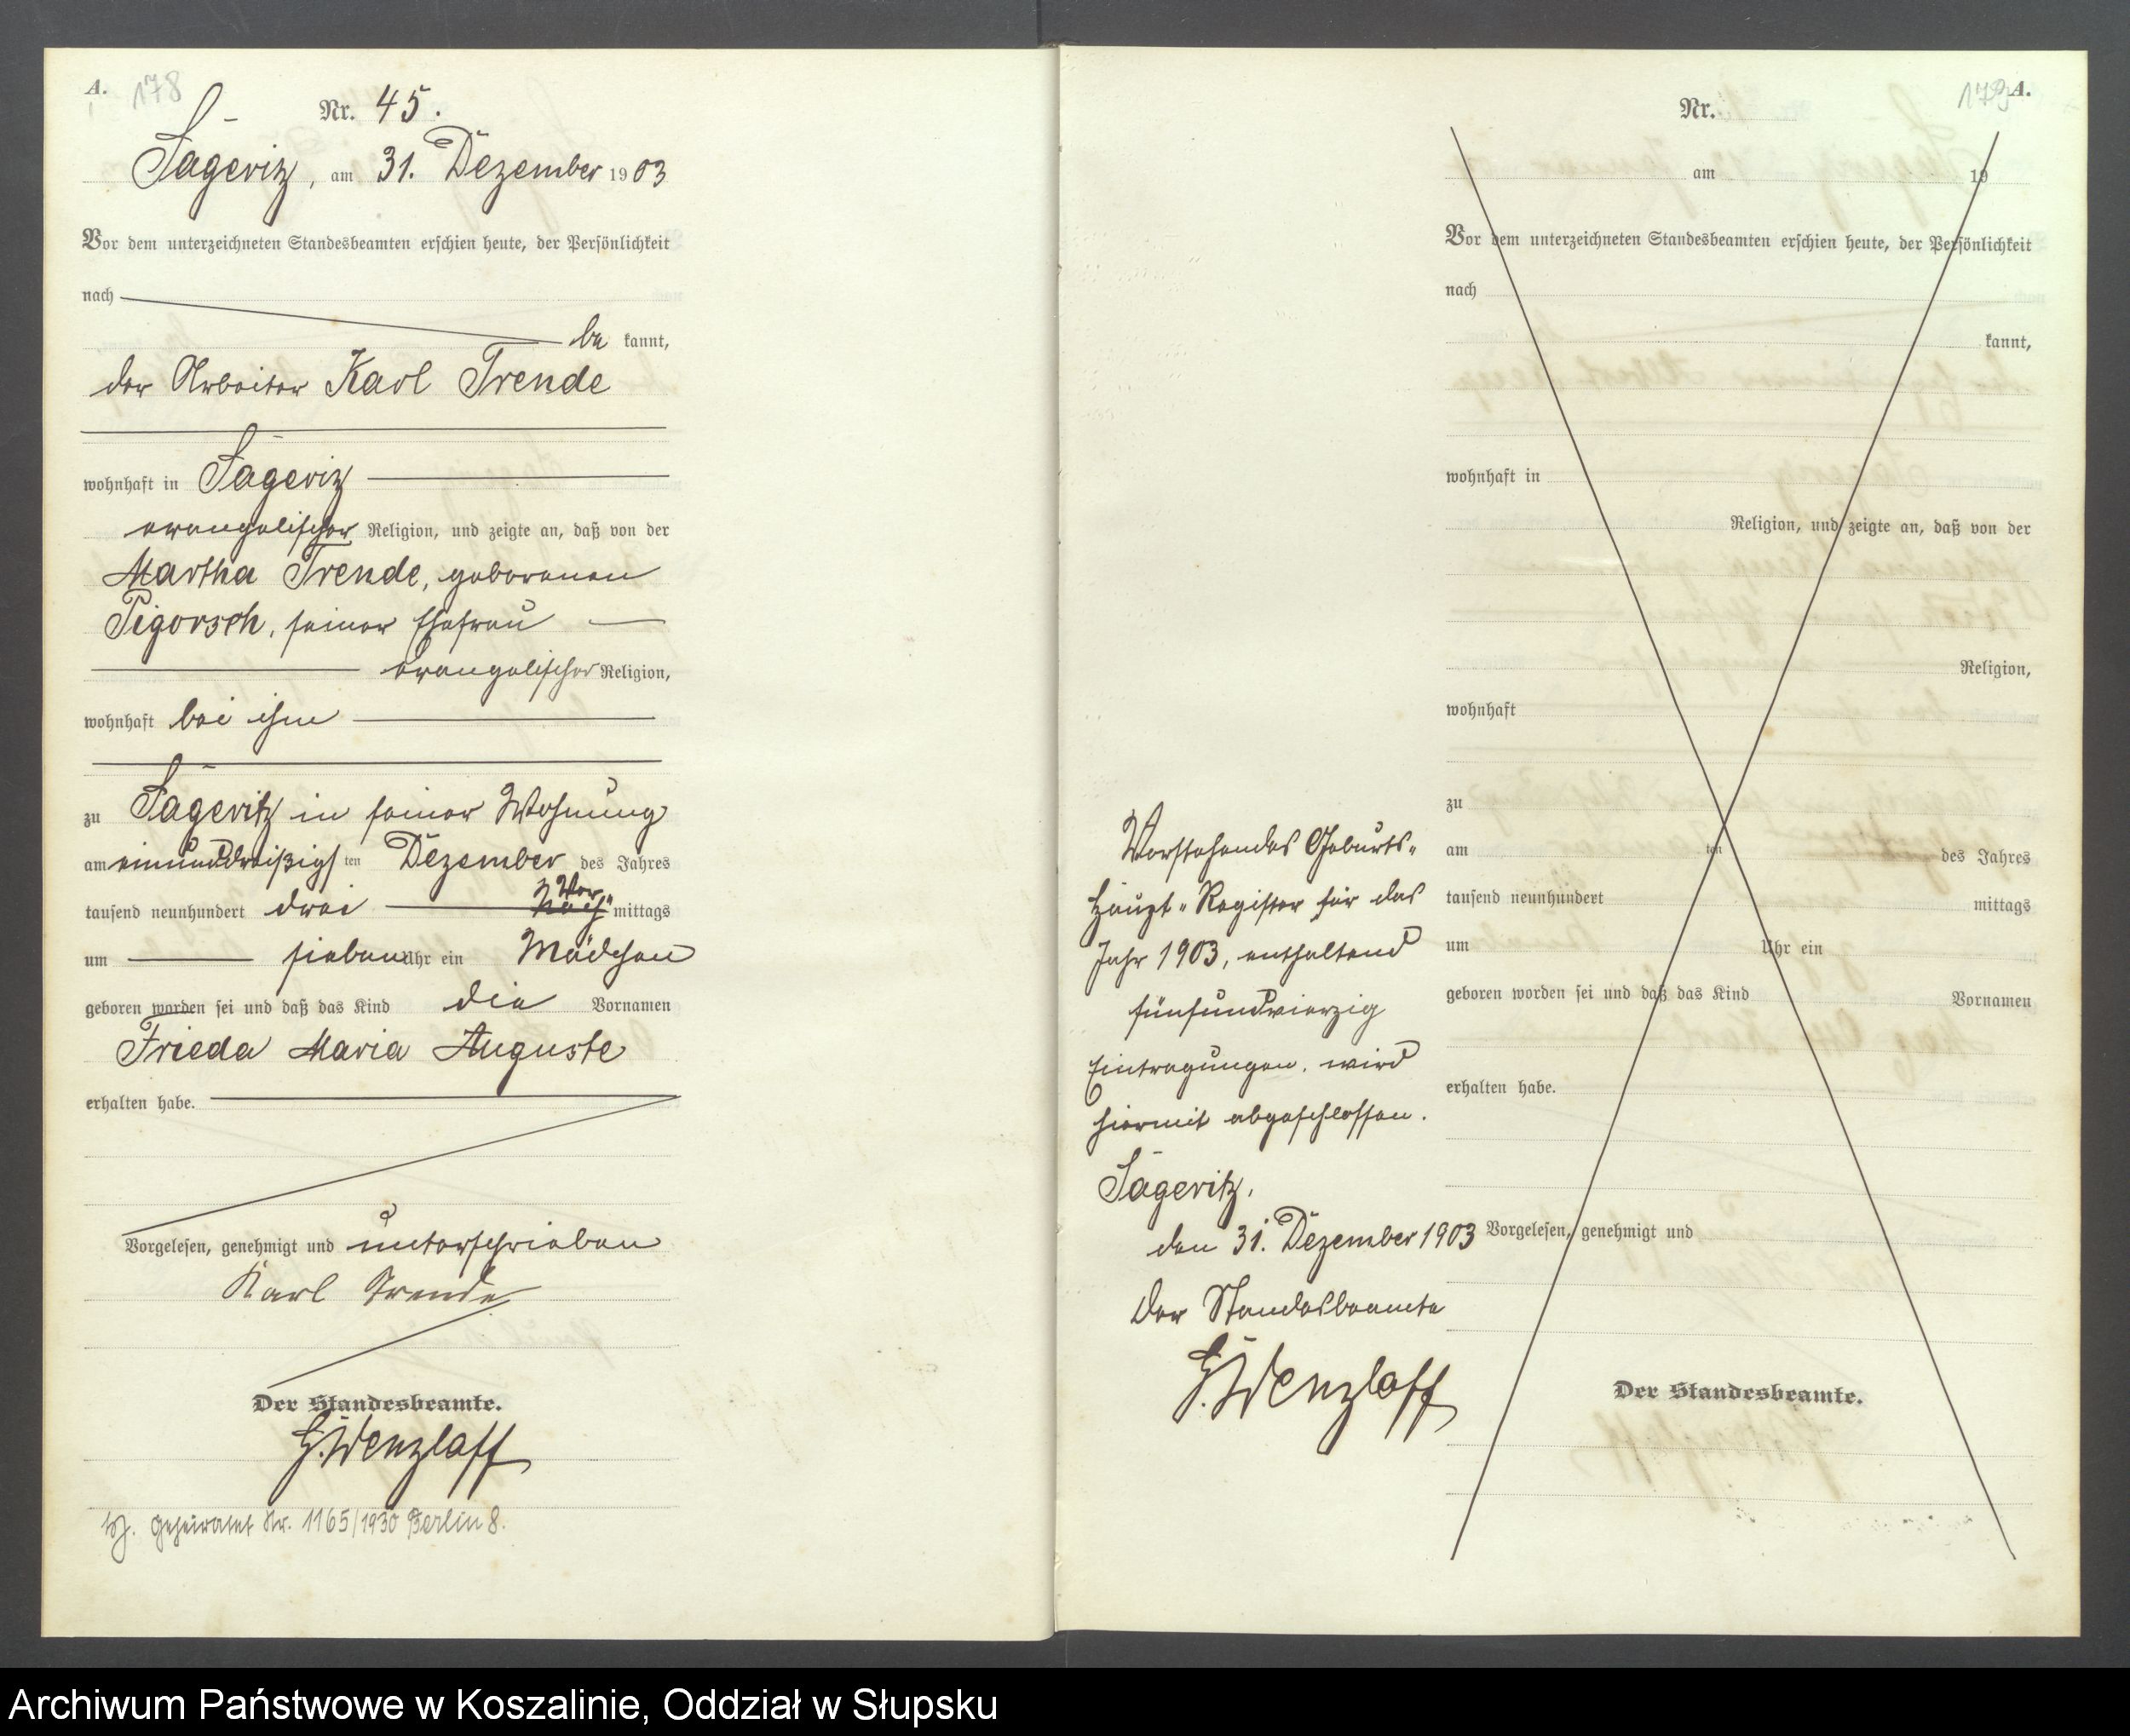 A. 178
Nr. 45.
Sageritz, am 31. Dezember 1903
Vor dem unterzeichneten Standesbeamten erschien heute, der Persönlichkeit
nach
be kannt,
der Arbeiter Karl Trende
wohnhaft in Sageritz
evangelischer Religion, und zeigte an, daß von der
Martha Trende, geborenen
Pigorsch, seiner Ehefrau
evangelischer Religion,
wohnhaft bei ihm
zu Sageritz in seiner Wohnung
am einunddreißigsten Dezember des Jahres
tausend neunhundert drei Vor
Nach mittags
um sieben Uhr ein Mädchen
geboren worden sei und daß das Kind die Vornamen
Frieda Maria Auguste
erhalten habe.
Vorgelesen, genehmigt und unterschrieben
Karl Trende
Der Standesbeamte.
G. Wenzlaff
Geheiratet Nr. 1165/1930 Berlin 8.
179 A.
Nr.
am 19
Vor dem unterzeichneten Standesbeamten erschien heute, der Persönlichkeit
nach
kannt,
wohnhaft in
Religion, und zeigte an, daß von der
Religion,
wohnhaft
zu
am ten des Jahres
tausend neunhundert mittags
um Uhr ein
geboren worden sei und daß das Kind Vornamen
erhalten habe.
Vorgelesen, genehmigt und
Der Standesbeamte.
Vorstehendes Geburts-
Haupt-Register für das
Jahr 1903, enthaltend
fünfundvierzig
Eintragungen, wird
hiermit abgeschlossen.
Sageritz,
den 31. Dezember 1903
Der Standesbeamte
G. Wenzlaff
Archiwum Państwowe w Koszalinie, Oddział w Słupsku